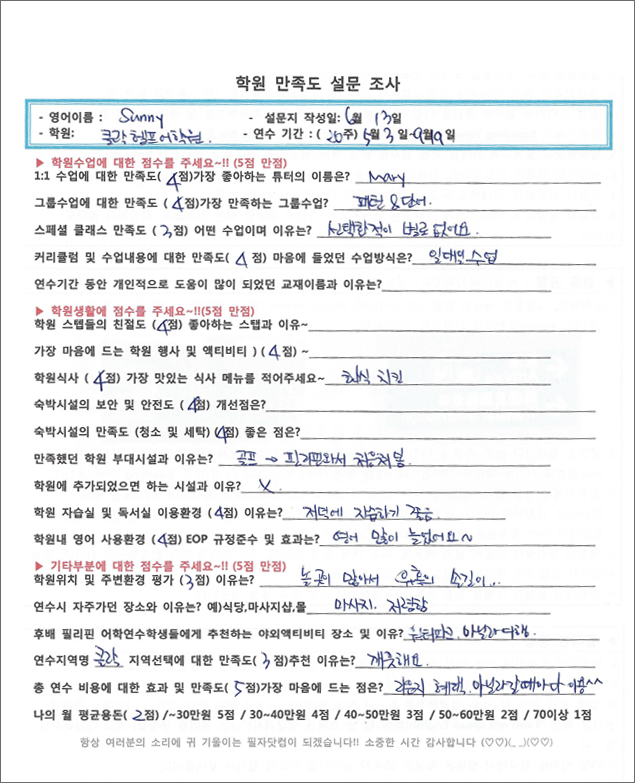 학원 만족도 설문 조사
- 영어이름 : Sunny - 설문지 작성일: 6월 13일
- 학원: 클락 헬프어학원. - 연수 기간 : ( 20주) 5월 3일~9월9일
▶ 학원수업에 대한 점수를 주세요~!! (5점 만점)
1:1 수업에 대한 만족도( 4점)가장 좋아하는 튜터의 이름은? Mary
그룹수업에 대한 만족도 ( 4점)가장 만족하는 그룹수업? 패턴 &단어.
스페셜 클래스 만족도 ( 3점) 어떤 수업이며 이유는? 선택한적이 별로 없어요.
커리큘럼 및 수업내용에 대한 만족도( 4 점) 마음에 들었던 수업방식은? 일대일 수업
연수기간 동안 개인적으로 도움이 많이 되었던 교재이름과 이유는?
▶ 학원생활에 점수를 주세요~!!(5점 만점)
학원 스텝들의 친절도 (4점) 좋아하는 스탭과 이유~
가장 마음에 드는 학원 행사 및 액티비티 ) (4점) ~
학원식사 ( 4점) 가장 맛있는 식사 메뉴를 적어주세요~ 치킨
숙박시설의 보안 및 안전도 (4점) 개선점은?
숙박시설의 만족도 (청소 및 세탁) (4점) 좋은 점은?
만족했던 학원 부대시설과 이유는? 골프 → 필리핀와서 처음쳐봄
학원에 추가되었으면 하는 시설과 이유? X.
학원 자습실 및 독서실 이용환경 (4점) 이유는? 저녁에 자습하기 좋음
학원내 영어 사용환경 (4점) EOP 규정준수 및 효과는? 영어 많이 늘었어요~
▶ 기타부분에 대한 점수를 주세요~!! (5점 만점)
학원위치 및 주변환경 평가 (3점) 이유는? 놀곳이 많아서 유혹의 손길이...
연수시 자주가던 장소와 이유는? 예)식당,마사지샵,몰 마사지.
후배 필리핀 어학연수학생들에게 추천하는 야외액티비티 장소 및 이유? 워터파크.
연수지역명 클락 지역선택에 대한 만족도( 3 점)추천 이유는? 깨끗해요.
총 연수 비용에 대한 효과 및 만족도( 5점)가장 마음에 드는 점은?
나의 월 평균용돈( 2점) /~30만원 5점 / 30~40만원 4점 / 40~50만원 3점 / 50~60만원 2점 / 70이상 1점
항상 여러분의 소리에 귀 기울이는 필자닷컴이 되겠습니다!! 소중한 시간 감사합니다 (♡♡)(_ _)(♡♡)